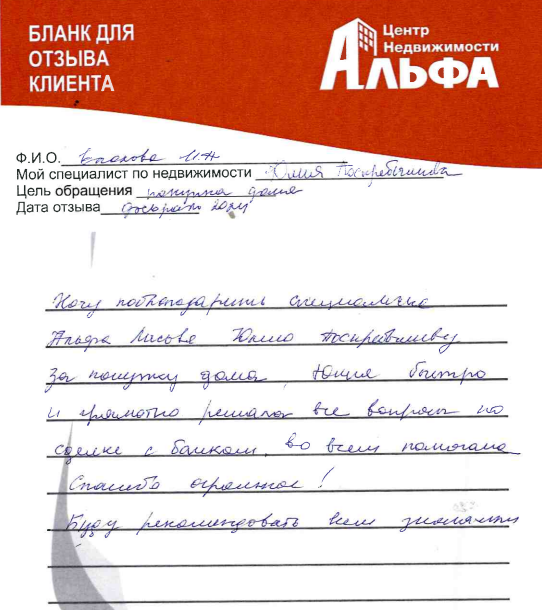 БЛАНК ДЛЯ
ОТЗЫВА
КЛИЕНТА
Центр
Недвижимости
АЛЬФА
Ф.И.О.
Мой специалист по недвижимости Юлия Поскребышева
Цель обращения покупка дома
Дата отзыва
Хочу поблагодарить специалиста
Альфа Юлию Поскребышеву
За покупку дома, Юлия быстро
и грамотно решала все вопросы по
сделке с банком, во всем помогала
Спасибо огромное!
Буду рекомендовать всем знакомым